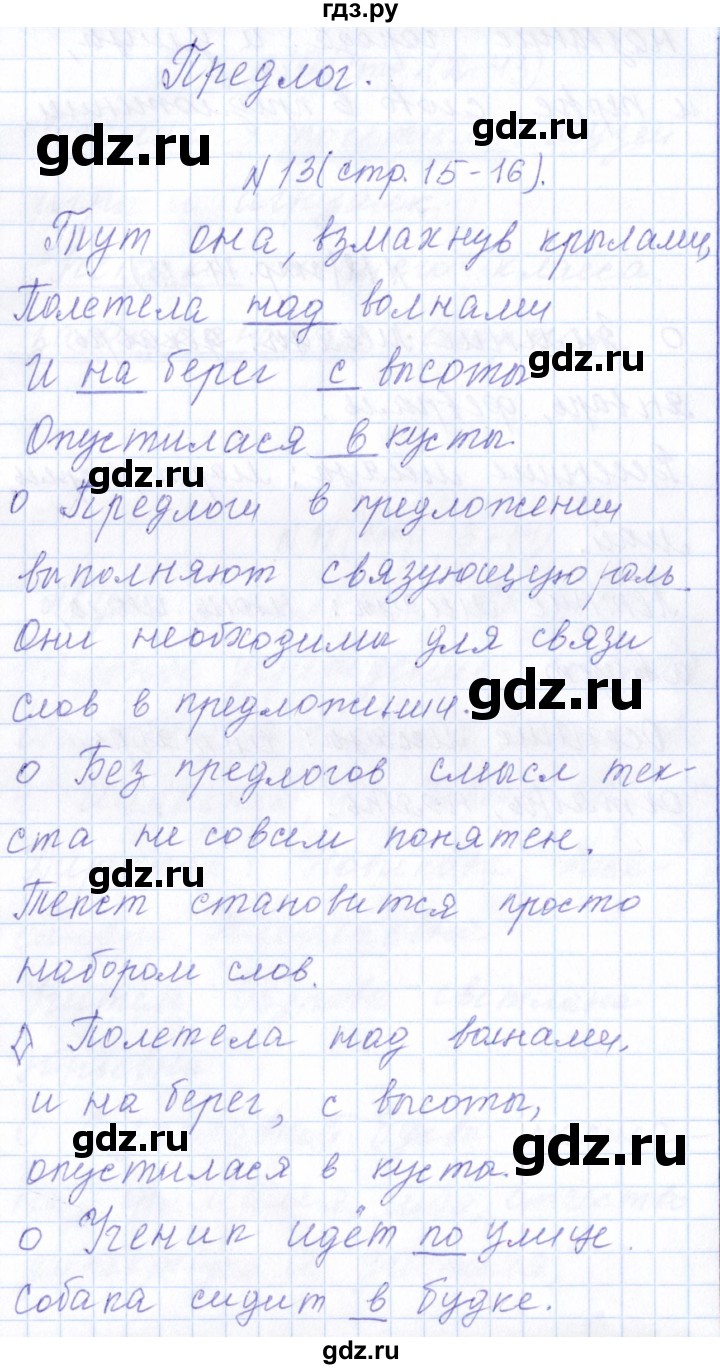 гдз.ру
Предлог.
gdz.ru
gdz.ru
N 13 (стр. 15-16).
Тут она, взмахнув крылами,
Полетела над волнами
И на берег с высоты
gdz.ru
Опустилася в кусты.
gdz.ru
о Предлоги в предложении
выполняют связующую роль.
Они необходимы для связи
gdz.ru
слов в предложении.
о Без предлогов смысл тек-
ста не совсем понятен.
gdz.ru
Текст становится просто
набором слов.
◊ Полетела над волнами,
и на берег, с высоты,
gdz.ru
gdz.ru
опустилася в куста.
о Ученик идёт по улице.
Собака сидит в будке.
gdz.ru